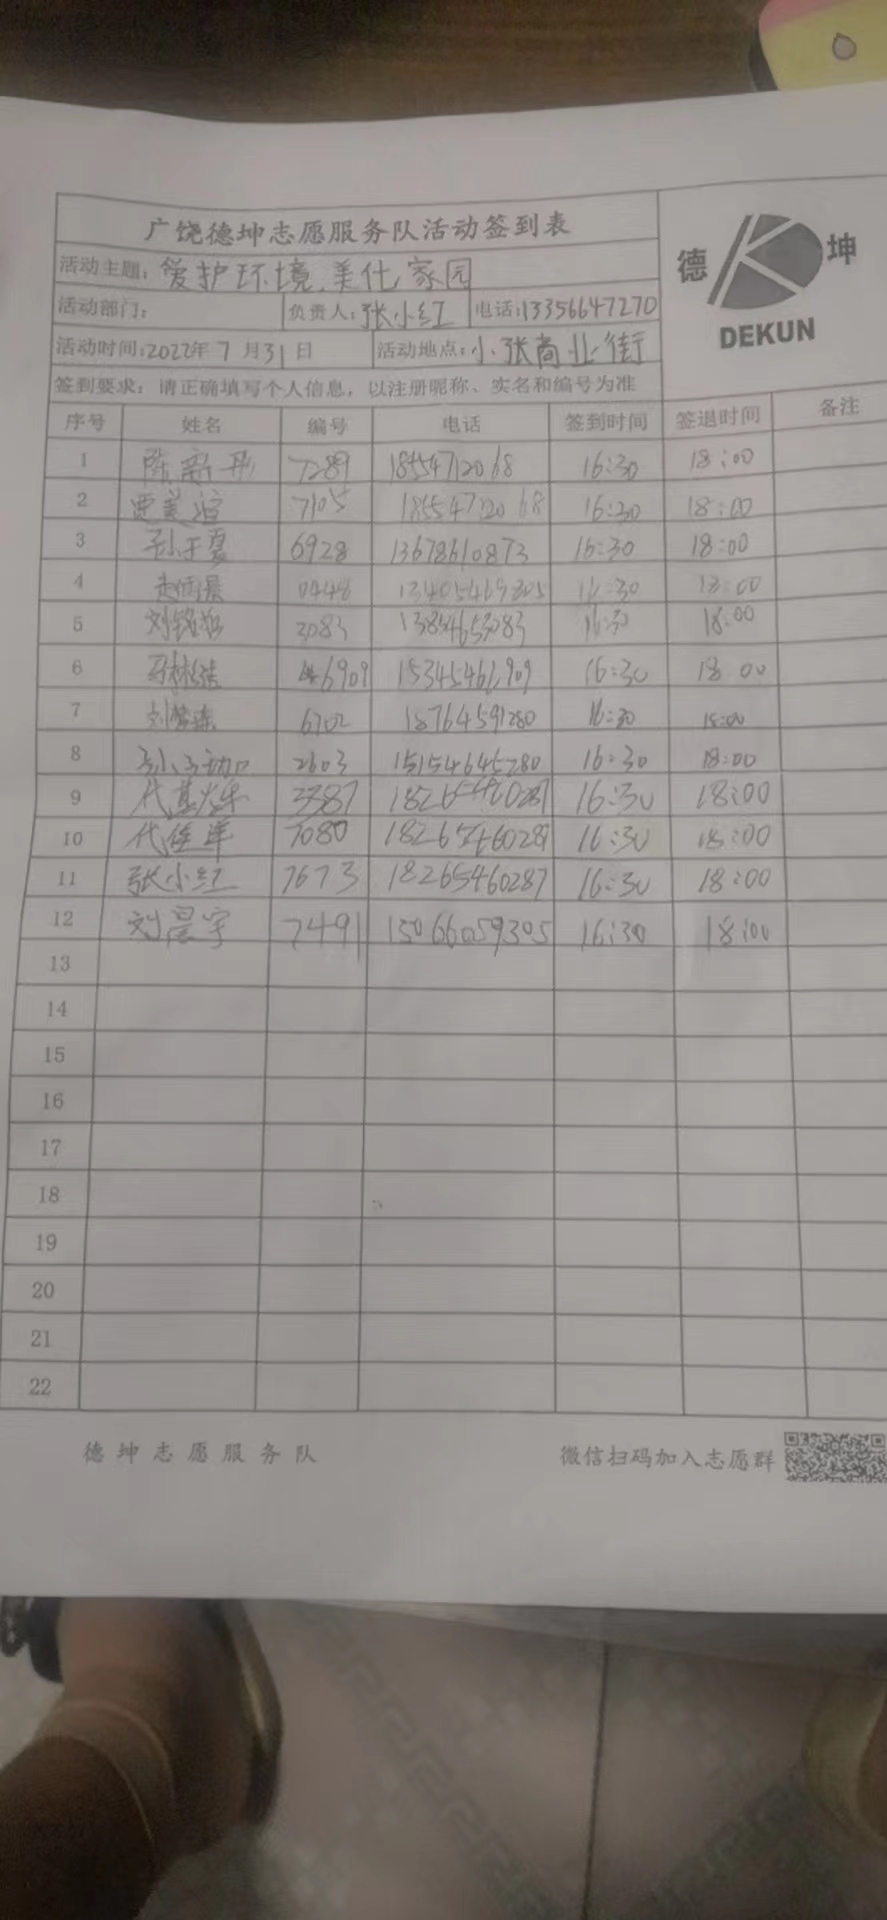 广饶德坤志愿服务队活动签到表
德 坤
DEKUN
活动主题：爱护环境，美化家园
活动部门： 负责人：张小红 电话：13356647270
活动时间：2022年7月31日 活动地点：小张商业街
签到要求：请正确填写个人信息，以注册昵称、实名和编号为准
序号 姓名 编号 电话 签到时间 签退时间 备注
1 7289 18554712068 16:30 18:00
2 7105 18554712068 16:30 18:00
3 6928 13678610873 16:30 18:00
4 0448 13405469305 16:30 18:00
5 3083 13854653083 16:30 18:00
6 6909 15345461909 16:30 18:00
7 6702 18764591280 16:30 18:00
8 2603 15154645280 16:30 18:00
9 3387 18265460287 16:30 18:00
10 7080 18265460287 16:30 18:00
11 张小红 7673 18265460287 16:30 18:00
12 刘晨宇 7491 15066059305 16:30 18:00
13
14
15
16
17
18
19
20
21
22
德坤志愿服务队 微信扫码加入志愿群